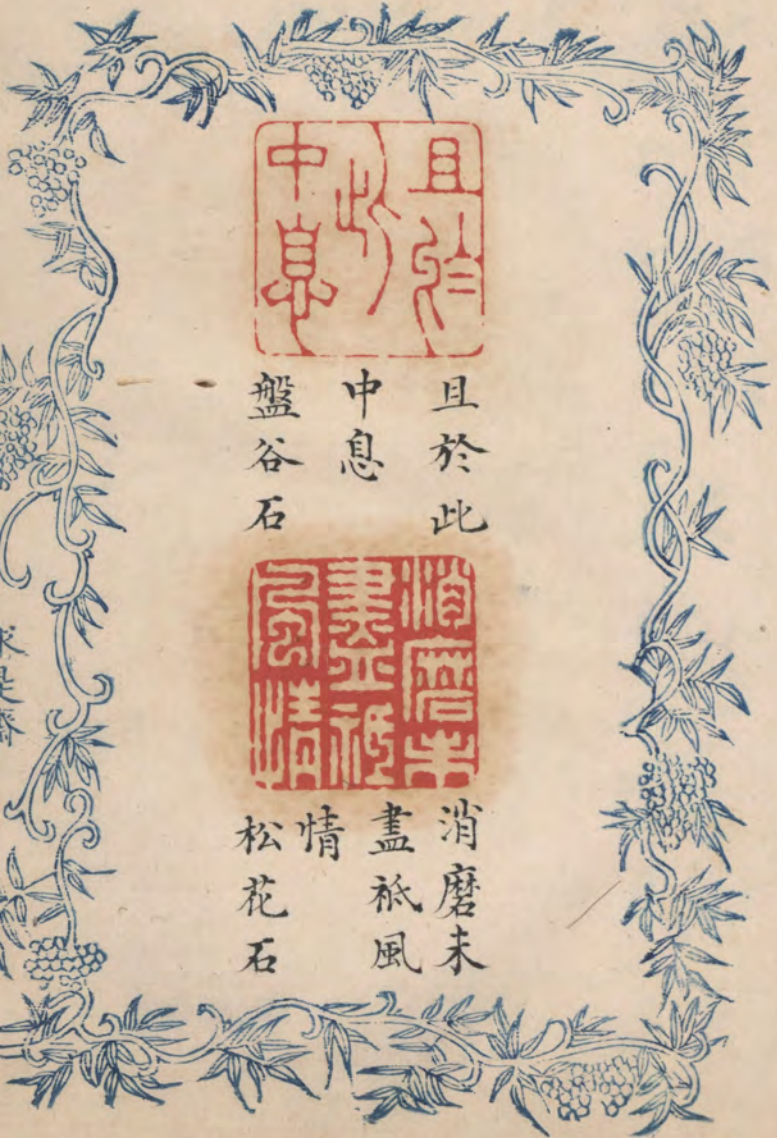 且於此
中息
且於此
中息
盤谷石
消磨未
盡祗風
情
消磨未
盡祗風
情
松花石
求是齋